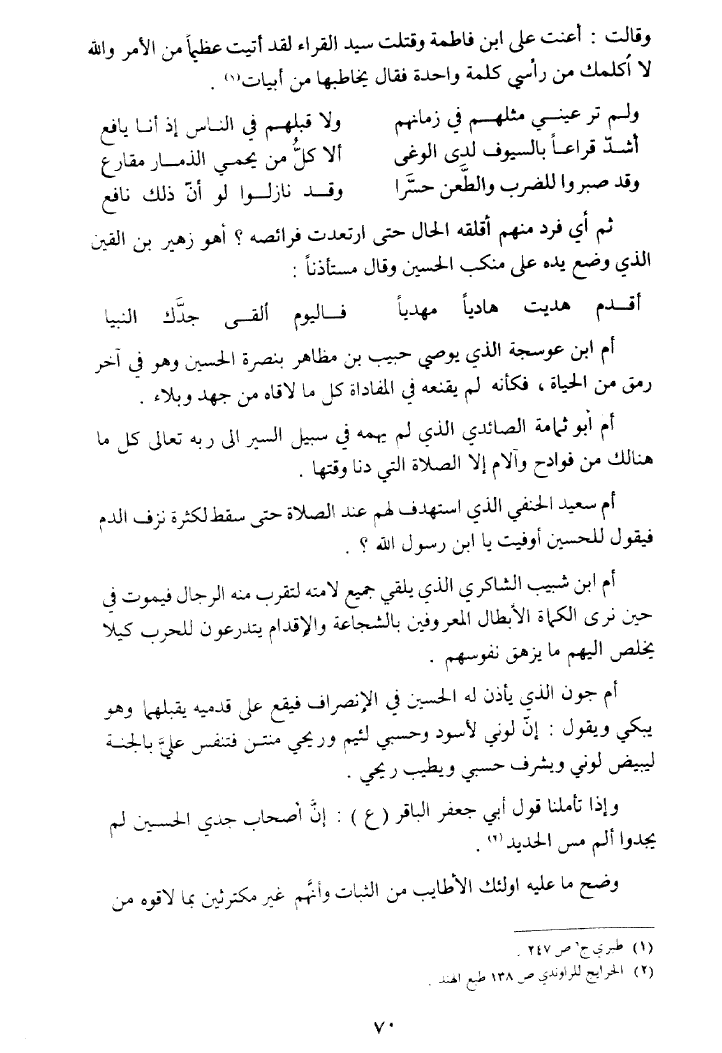 وقالت : أعنت على ابن فاطمة وقتلت سيد القراء لقد أتيت عظيماً من الأمر والله
لا أكلمك من رأسي كلمة واحدة فقال يخاطبها من أبيات(١) .
ولم تر عيني مثلهم في زمانهم ولا قبلهم في الناس إذ أنا يافع
أشدّ قراعاً بالسيوف لدى الوغى ألا كلُّ من يحمي الذمار مقارع
وقد صبروا للضرب والطَّعن حسَّرا وقد نازلوا لو أنّ ذلك نافع
ثم أي فرد منهم أقلقه الحال حتى ارتعدت فرائصه ؟ أهو زهير بن القين
الذي وضع يده على منكب الحسين وقال مستأذناً :
أقدم هديت هادياً مهدياً فاليوم ألقى جدَّك النبيا
أم ابن عوسجة الذي يوصي حبيب بن مظاهر بنصرة الحسين وهو في آخر
رمق من الحياة ، فكأنه لم يقنعه في المفاداة كل ما لاقاه من جهد وبلاء .
أم أبو ثمامة الصائدي الذي لم يهمه في سبيل السير الى ربه تعالى كل ما
هنالك من فوادح وآلام إلا الصلاة التي دنا وقتها .
أم سعيد الحنفي الذي استهدف لهم عند الصلاة حتى سقط لكثرة نزف الدم
فيقول للحسين أوفيت يا ابن رسول الله ؟ .
أم ابن شبيب الشاكري الذي يلقي جميع لامته لتقرب منه الرجال فيموت في
حين نرى الكماة الأبطال المعروفين بالشجاعة والإقدام يتدرعون للحرب كيلا
يخلص اليهم ما يزهق نفوسهم .
أم جون الذي يأذن له الحسين في الإنصراف فيقع على قدميه يقبلهما وهو
يبكي ويقول : إنّ لوني لأسود وحسبي لئيم وريحي منتن فتنفس عليَّ بالجنة
ليبيض لوني ويشرف حسبي ويطيب ريحي .
وإذا تأملنا قول أبي جعفر الباقر ( ع ) : إنَّ أصحاب جدي الحسين لم
يجدوا ألم مس الحديد(٢) .
وضح ما عليه اولئك الأطايب من الثبات وأنَّهم غير مكترثين بما لاقوه من
(١) طبري ج٦ ص ٢٤٧ .
(٢) الخرايج للراوندي ص ١٣٨ طبع الهند .
٧٠